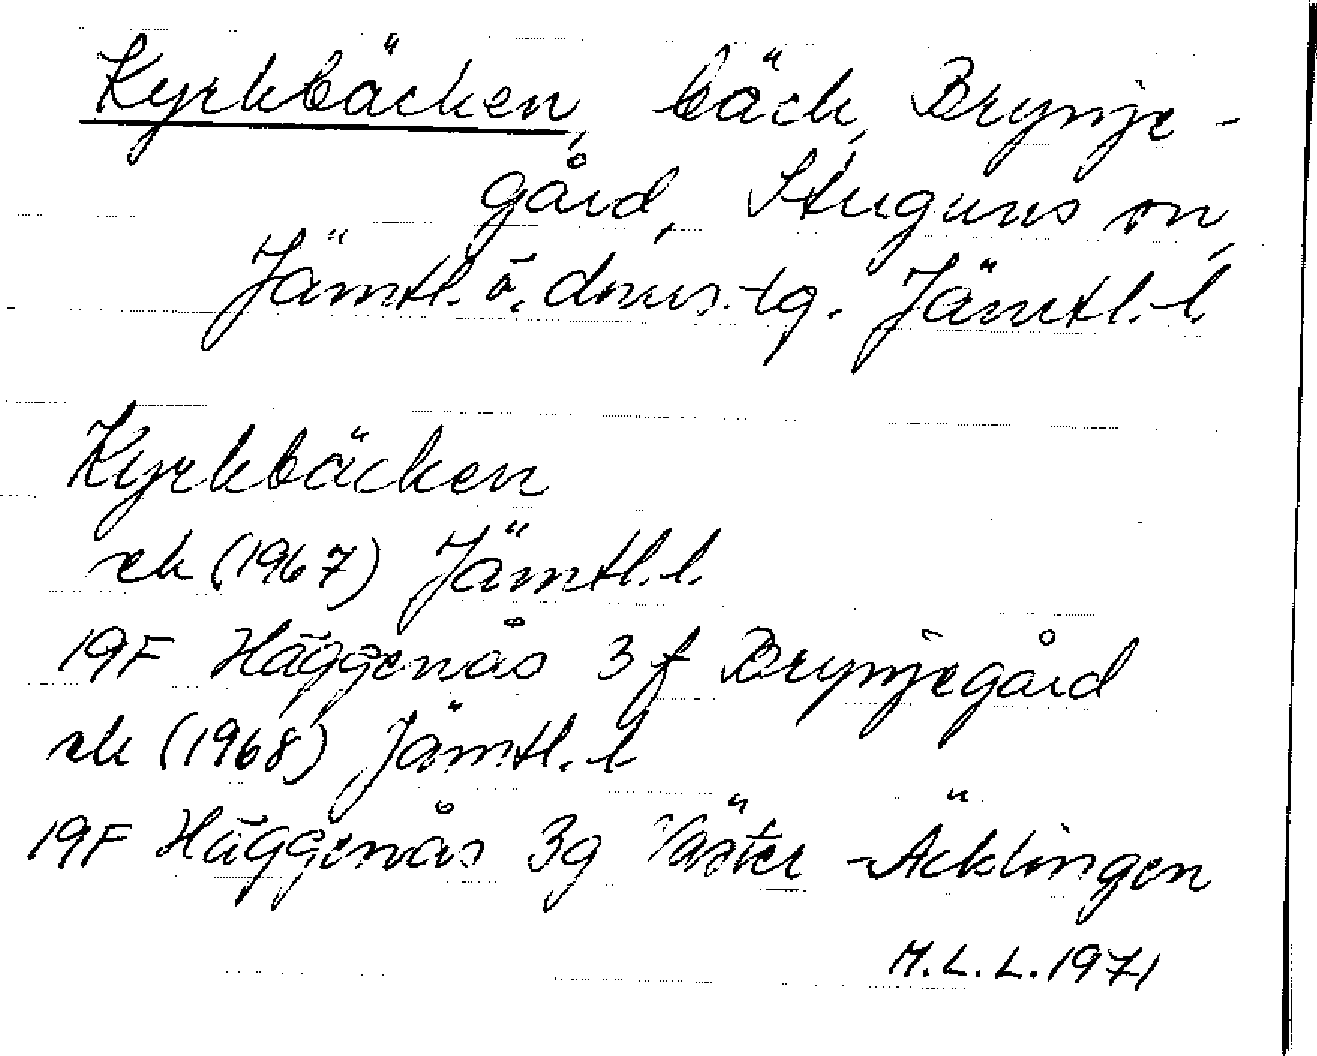 Kyrkbäcken, bäck, Brynje-
gård, Stuguns sn,
Jämtl. ö. doms.-tg. Jämtl. l.
Kyrkbäcken
rek (1967) Jämtl. l.
19F Häggenås 3f Brynjegård
rek (1968) Jämtl. l
19F Häggenås 3g Väster-Äcklingen
M.L.L. 1971